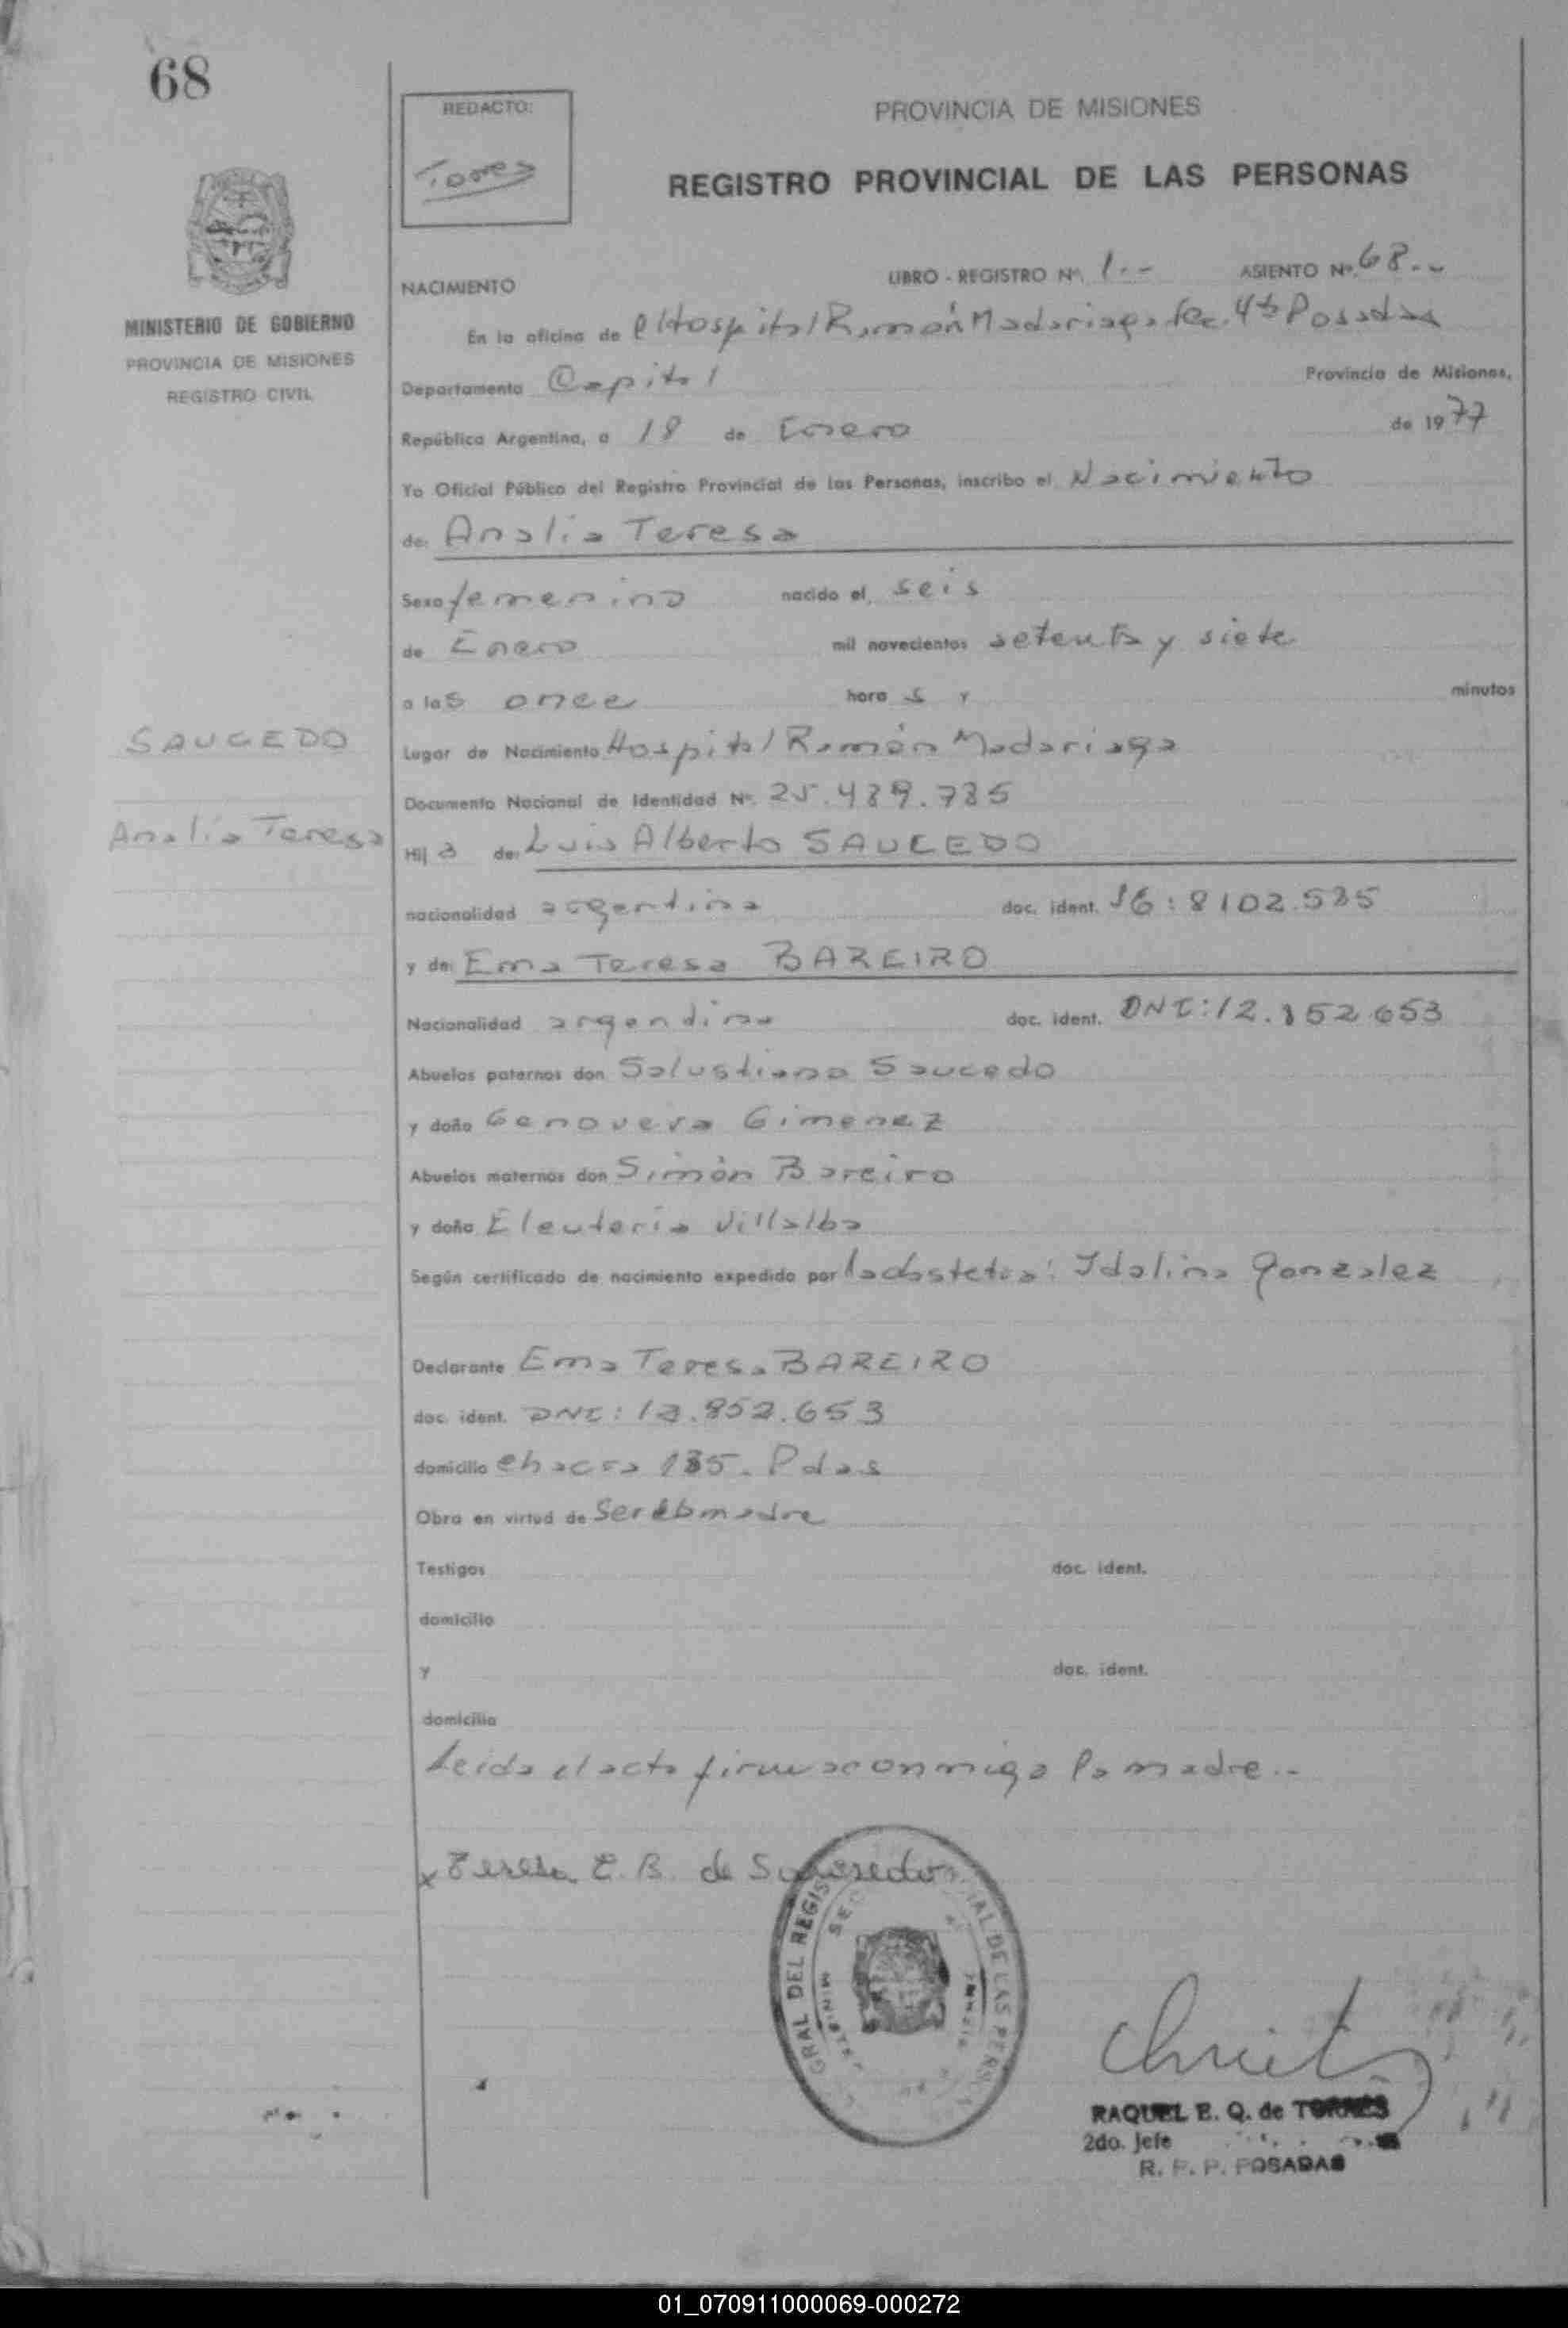 68
REDACTO:
Torres
PROVINCIA DE MISIONES
REGISTRO PROVINCIAL DE LAS PERSONAS
MINISTERIO DE GOBIERNO
PROVINCIA DE MISIONES
REGISTRO CIVIL
NACIMIENTO LIBRO - REGISTRO Nº. 1.-- ASIENTO Nº. 68.--
En la oficina de el Hospital Ramón Madariaga Sec. 4ta Posadas
Departamento Capital Provincia de Misiones,
República Argentina, a 18 de Enero de 1977
Yo Oficial Público del Registro Provincial de las Personas, inscribo el Nacimiento
de: Analia Teresa
Sexo femenino nacido el, seis
de Enero mil novecientos setenta y siete
a las once hora s y minutos
SAUCEDO
Analia Teresa
Lugar de Nacimiento Hospital Ramón Madariaga
Documento Nacional de Identidad Nº. 25.489.785
Hij a de: Luis Alberto SAUCEDO
nacionalidad argentina doc. ident. 8102.585
y de: Ema Teresa BAREIRO
Nacionalidad argentina doc. ident. DNI: 12.852.653
Abuelos paternos don Salustiano Saucedo
y doña Genoveva Gimenez
Abuelos maternos don Simón Bareiro
y doña Eleuteria Villalba
Según certificado de nacimiento expedido por la obstetra: Idalina Gonzalez
Declarante Ema Teresa BAREIRO
doc. ident. DNI: 12.852.653
domicilio chacra 185. Pdas
Obra en virtud de Ser la madre
Testigos doc. ident.
domicilio
y doc. ident.
domicilio
Leida el acta firma conmigo la madre.-
x Teresa E. B. de Sauseedo
GRAL DEL REGIS IAL DE LAS PERSO
RAQUEL E. Q. de TORRES
2do. Jefe
R. P. P. POSADAS
01_070911000069-000272